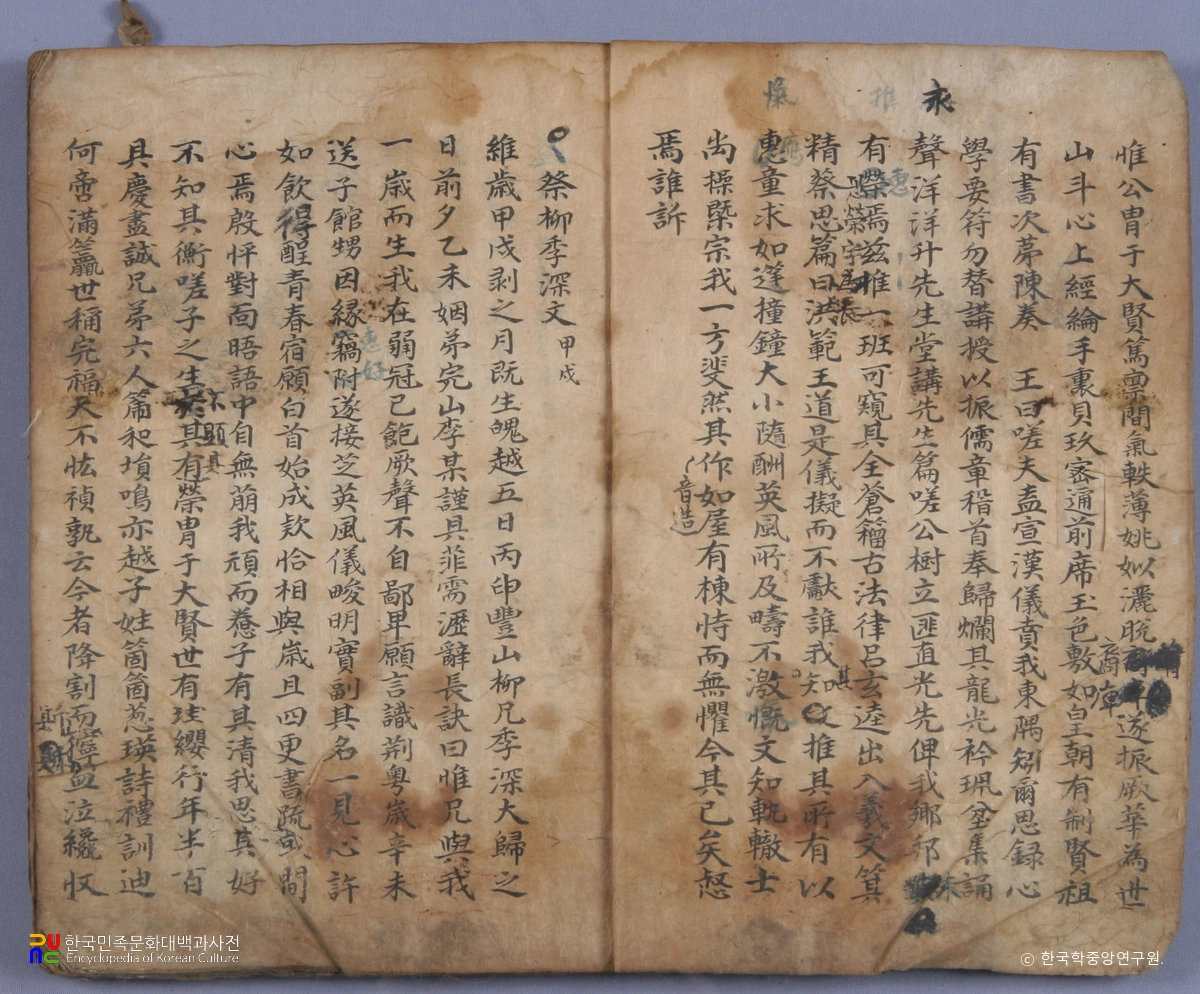 永
惟公胄于大賢篤禀間氣軼薄姚姒灑脫遂振厥華為世
山斗心上經綸手裏貝玖密通前席玉色敷如皇朝有制賢祖
有書次夢陳奏 王曰嗟夫盍宣漢儀賁我東隅矧爾思録心
學要符勿替講授以振儒章稽首奉歸爛其龍光衿珮坌集誦
聲洋洋升先生堂講先生篇嗟公樹立匪直光先俾我鄉邦
有榮焉玆推一班可窺具全蒼籒古法律呂玄逵出入羲文箕
精蔡思篇曰洪範王道是儀擬而不獻誰我知其推其所有以
惠童求如逢撞鐘大小隨酬英風所及疇不激慨文知軌轍士
尙操槩宗我一方斐然其作如屋有棟恃而無懼今其已矣惄
音造
焉誰訴
祭柳季深文 甲戌
維歲甲戌剥之月既生魄越五日丙申豐山柳兄季深大歸之
日前夕乙未姻弟完山李某謹具菲需瀝辭長訣曰惟兄與我
一歲而生我在弱冠已飽厥聲不自鄙卑願言識荊粤歲辛未
送子館甥因緣竊附遂接芝英風儀畯明實副其名一見心許
如飲得醒青春宿願白首始成欵恰相與歲且四更書疏或間
心焉殷怦對面晤語中自無崩我頑而憃子有其清我思其好
不知其衡嗟子之生其有榮胄于大賢世有珪纓行年半百
不顯其
具慶盡誠兄弟六人篪和塤鳴亦越子姓箇箇蔥瑛詩禮訓迪
何啻滿籯世稱完福天不恡禎孰云今者降割而泣纔收
한국민족문화대백과사전
Encyclopedia of Korean Culture
ⓒ 한국학중앙연구원.